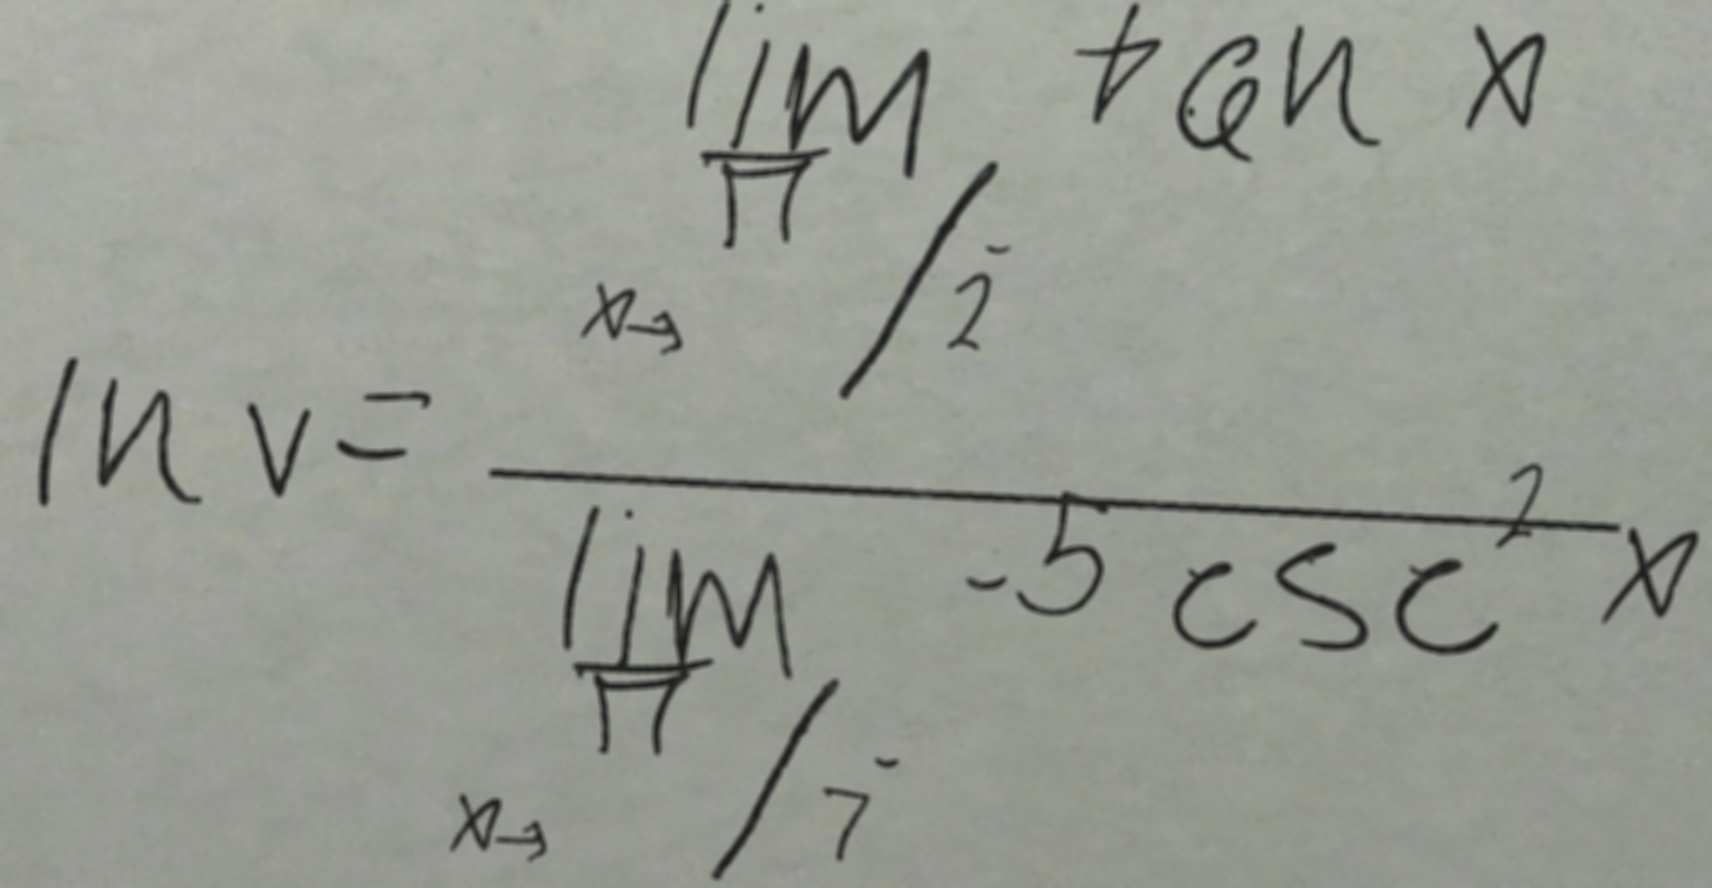 ln v = \frac{\lim_{x \to \pi/2^-} \tan x}{\lim_{x \to \pi/7^-} -5 \csc^2 x}